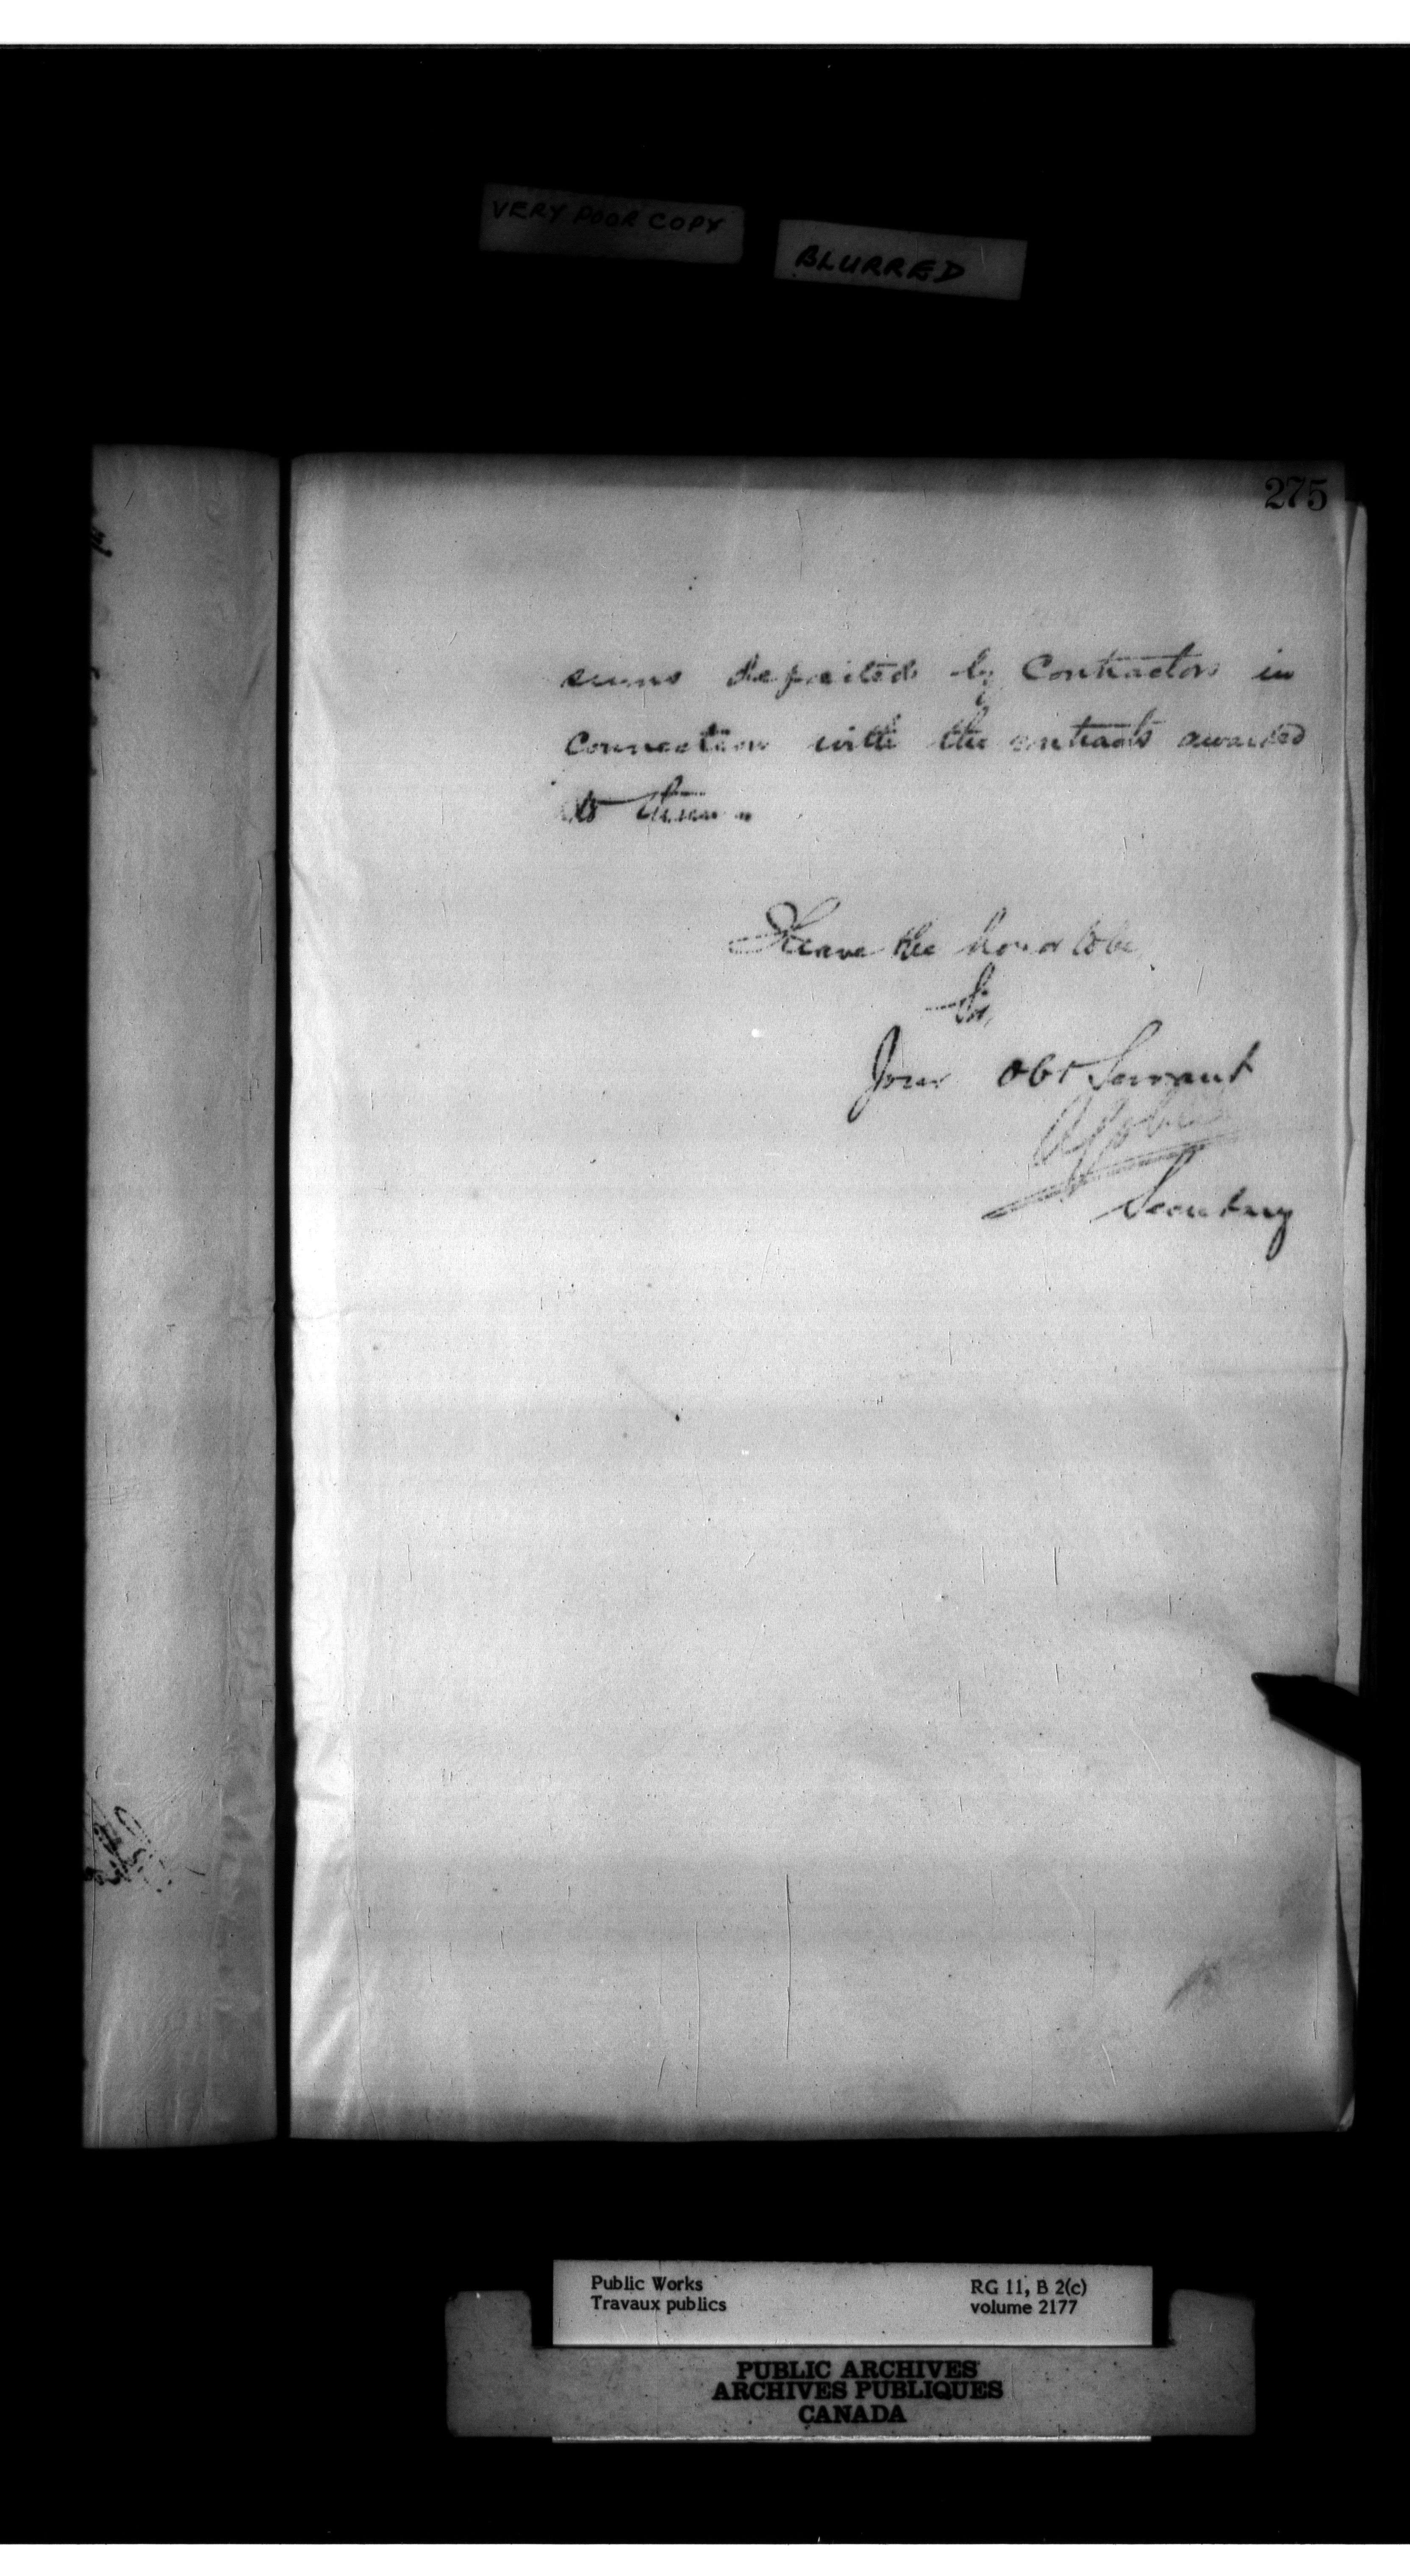 VERY POOR COPY
BLURRED
275
sums deposited by Contractors in
connection with the contracts awarded
to them.
I have the honor to be,
Sir,
Your Obt Servant
Secretary
Public Works
Travaux publics
RG 11, B 2(c)
volume 2177
PUBLIC ARCHIVES
ARCHIVES PUBLIQUES
CANADA